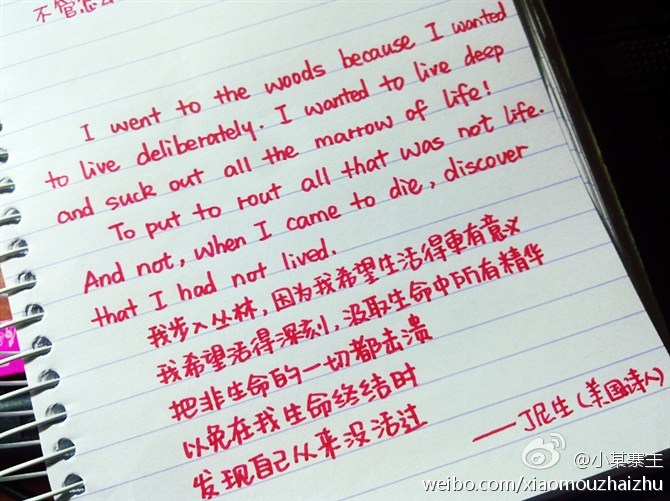 不管怎
I went to the woods because I wanted
to live deliberately. I wanted to live deep
and suck out all the marrow of life!
To put to rout all that was not life.
And not, when I came to die, discover
that I had not lived.
我步入丛林,因为我希望生活得更有意义
我希望活得深刻,汲取生命中所有精华
把非生命的一切都击溃
以免在我生命终结时
发现自己从来没活过
——丁尼生(美国诗人)
@小某寨主
weibo.com/xiaomouzhaizhu